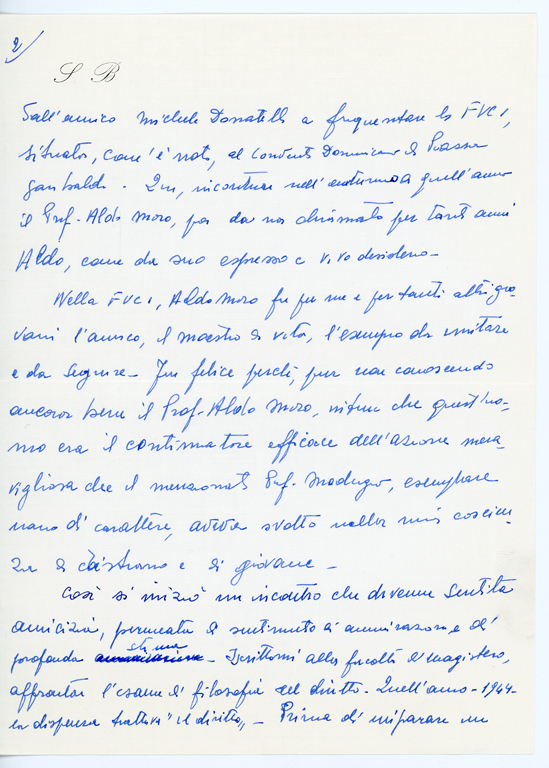 2/
S B
dall'amico Michele Donatelli a frequentare la FUCI,
situata, com'è noto, al Convento Domenicano di Piazza
Garibaldi - Qui, incontrai nell'autunno di quell'anno
il Prof. Aldo Moro, poi da noi chiamato per tanti anni
Aldo, come da suo espresso e vivo desiderio -
Nella FUCI, Aldo Moro fu per me e per tanti altri gio-
vani l'amico, il maestro di vita, l'esempio da imitare
e da seguire - Fui felice perché, pur non conoscendo
ancora bene il Prof. Aldo Moro, ritenni che quest'uo-
mo era il continuatore efficace dell'azione mera-
vigliosa che il menzionato Prof. Madugno, esemplare
uomo di carattere, aveva svolto nella mia coscien-
za di cristiano e di giovane -
Così si iniziò un incontro che divenne sentita
amicizia, permeata di sentimento di ammirazione e di
profonda stima - Iscrittomi alla facoltà di magistero,
affrontai l'esame di filosofia del diritto - Quell'anno - 1944 -
la dispensa trattava "il diritto" - Prima di imparare un